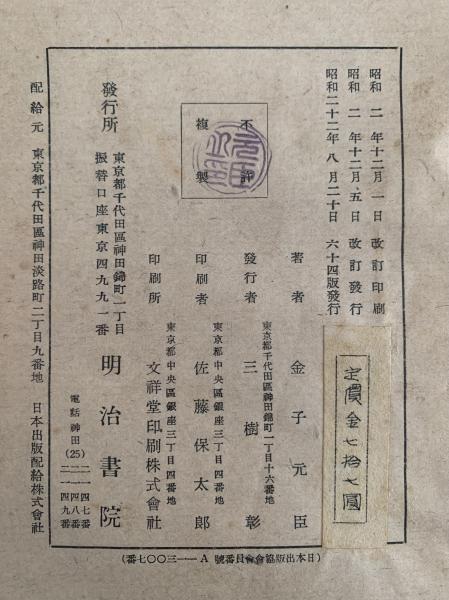 昭和二年十二月一日改訂印刷
昭和二年十二月五日改訂發行
昭和二十二年八月二十日六十四版發行
定價金七拾七圓
不許
複製
著者 金子元臣
東京都千代田區神田錦町一丁目十六番地
發行者 三樹彰
東京都中央區銀座三丁目四番地
印刷者 佐藤保太郎
東京都中央區銀座三丁目四番地
印刷所 文祥堂印刷株式會社
發行所
東京都千代田區神田錦町一丁目
振替口座東京四九九一番
明治書院
電話神田(25)
二一四七番
二一四八番
二一四九番
配給元 東京都千代田區神田淡路町二丁目九番地 日本出版配給株式會社
(日本出版協會會員番號 A—三〇〇七番)